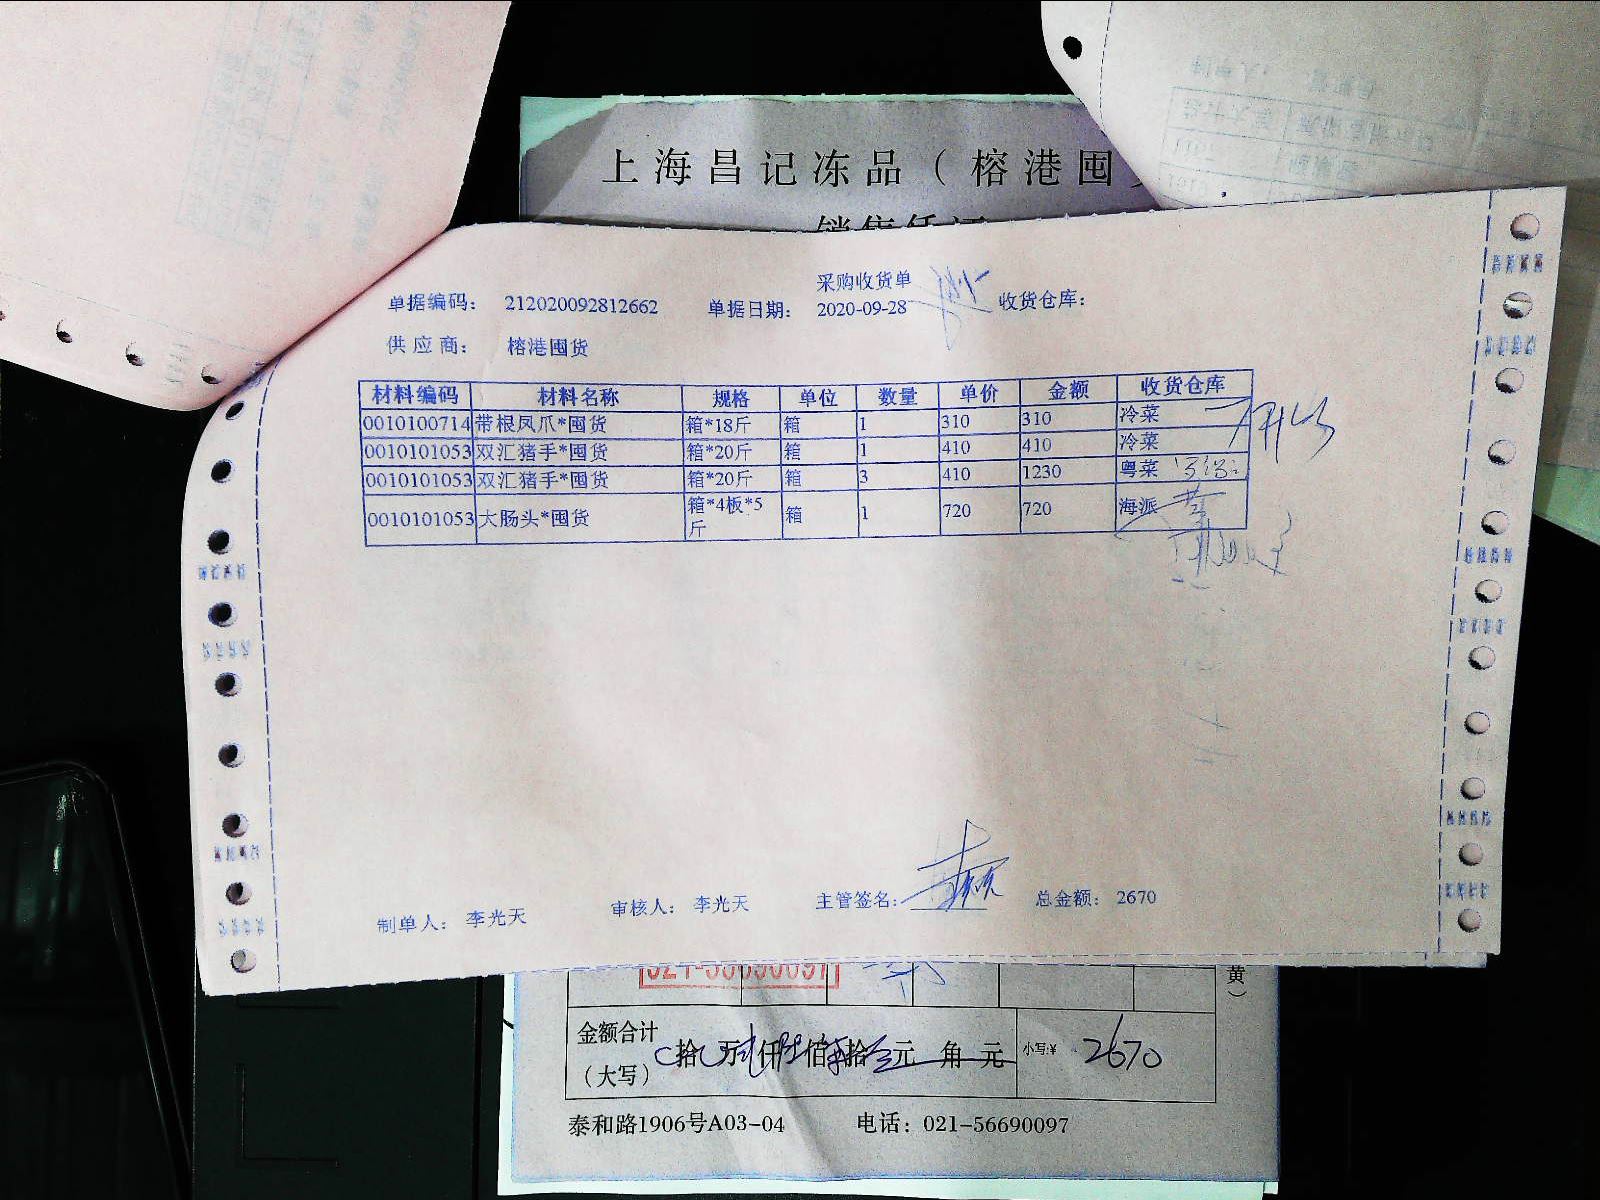 上海昌记冻品（榕港囤
销售凭证
采购收货单
单据编码： 212020092812662 单据日期： 2020-09-28 收货仓库：
供应商： 榕港囤货
材料编码 材料名称 规格 单位 数量 单价 金额 收货仓库
0010100714 带根凤爪*囤货 箱*18斤 箱 1 310 310 冷菜
0010101053 双汇猪手*囤货 箱*20斤 箱 1 410 410 冷菜
0010101053 双汇猪手*囤货 箱*20斤 箱 3 410 1230 粤菜
0010101053 大肠头*囤货 箱*4板*5斤 箱 1 720 720 海派
制单人： 李光天 审核人： 李光天 主管签名： 总金额： 2670
021-56690097
黄）
金额合计（大写） 拾 万 仟 佰 拾 元 角 元 小写:¥ 2670
泰和路1906号A03-04 电话：021-56690097